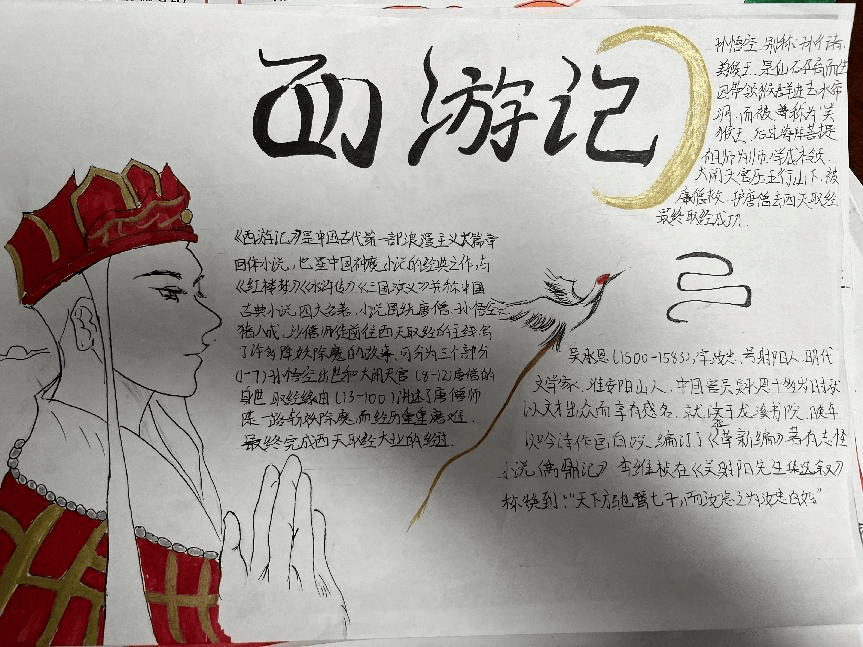 西游记
孙悟空,别称:孙行者,
美猴王,是仙石孕育而生
因带领猴群进去水帘
洞,而被尊称为"美
猴王,后过海拜菩提
祖师为师,学成本领
大闹天宫压五行山下,被
唐僧救,护唐僧去西天取经
最终取经成功.
《西游记》是中国古代第一部浪漫主义长篇章
回体小说,也是中国神魔小说的经典之作,与
《红楼梦》《水浒传》《三国演义》并称中国
古典小说,四大名著,小说围绕唐僧、孙悟空
猪八戒、沙僧师徒前往西天取经的往线
了许多降妖除魔的故事,可分为三个部分
(1-7)孙悟空出世和大闹天宫(8-12)唐僧的
身世、取经缘由(13-100)讲述了唐僧师
徒一路斩妖除魔,而经历重重磨难.
最终完成西天取经大业的经过.
吴承恩(1500-1583),字汝忠,号射阳人,明代
文学家,淮安阳山人,中国官员吴承恩
以文才出众而享有盛名,就读于龙溪书院,晚年
以吟诗作画自娱,编订了《草新编》著有志怪
小说《禹鼎记》李维桢在《吴射阳先生集选叙》
称快到:"天下方驰骛七子,而汝忠之为汝忠自如"